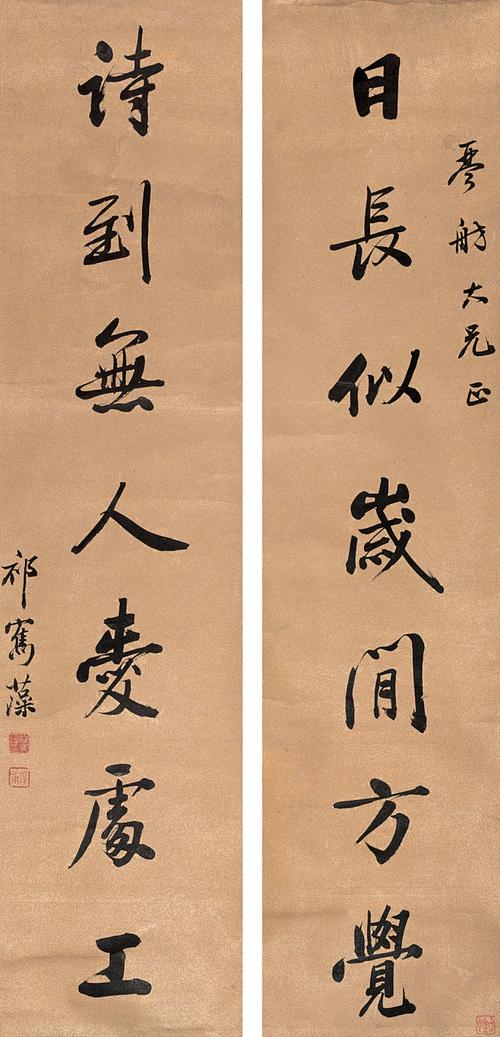 琴舫大兄正
日長似歲閒方覺
詩到無人愛處工
祁寯藻